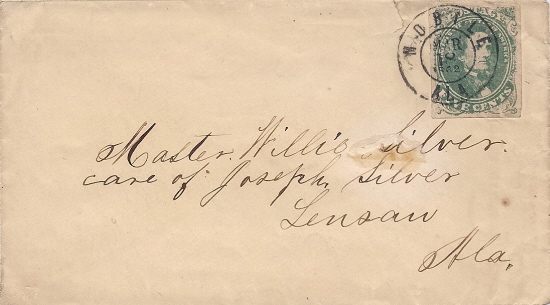 MOBILE
ALA
FIVE CENTS
Master. Willie Silver.
care of Joseph Silver
Tensaw
Ala.